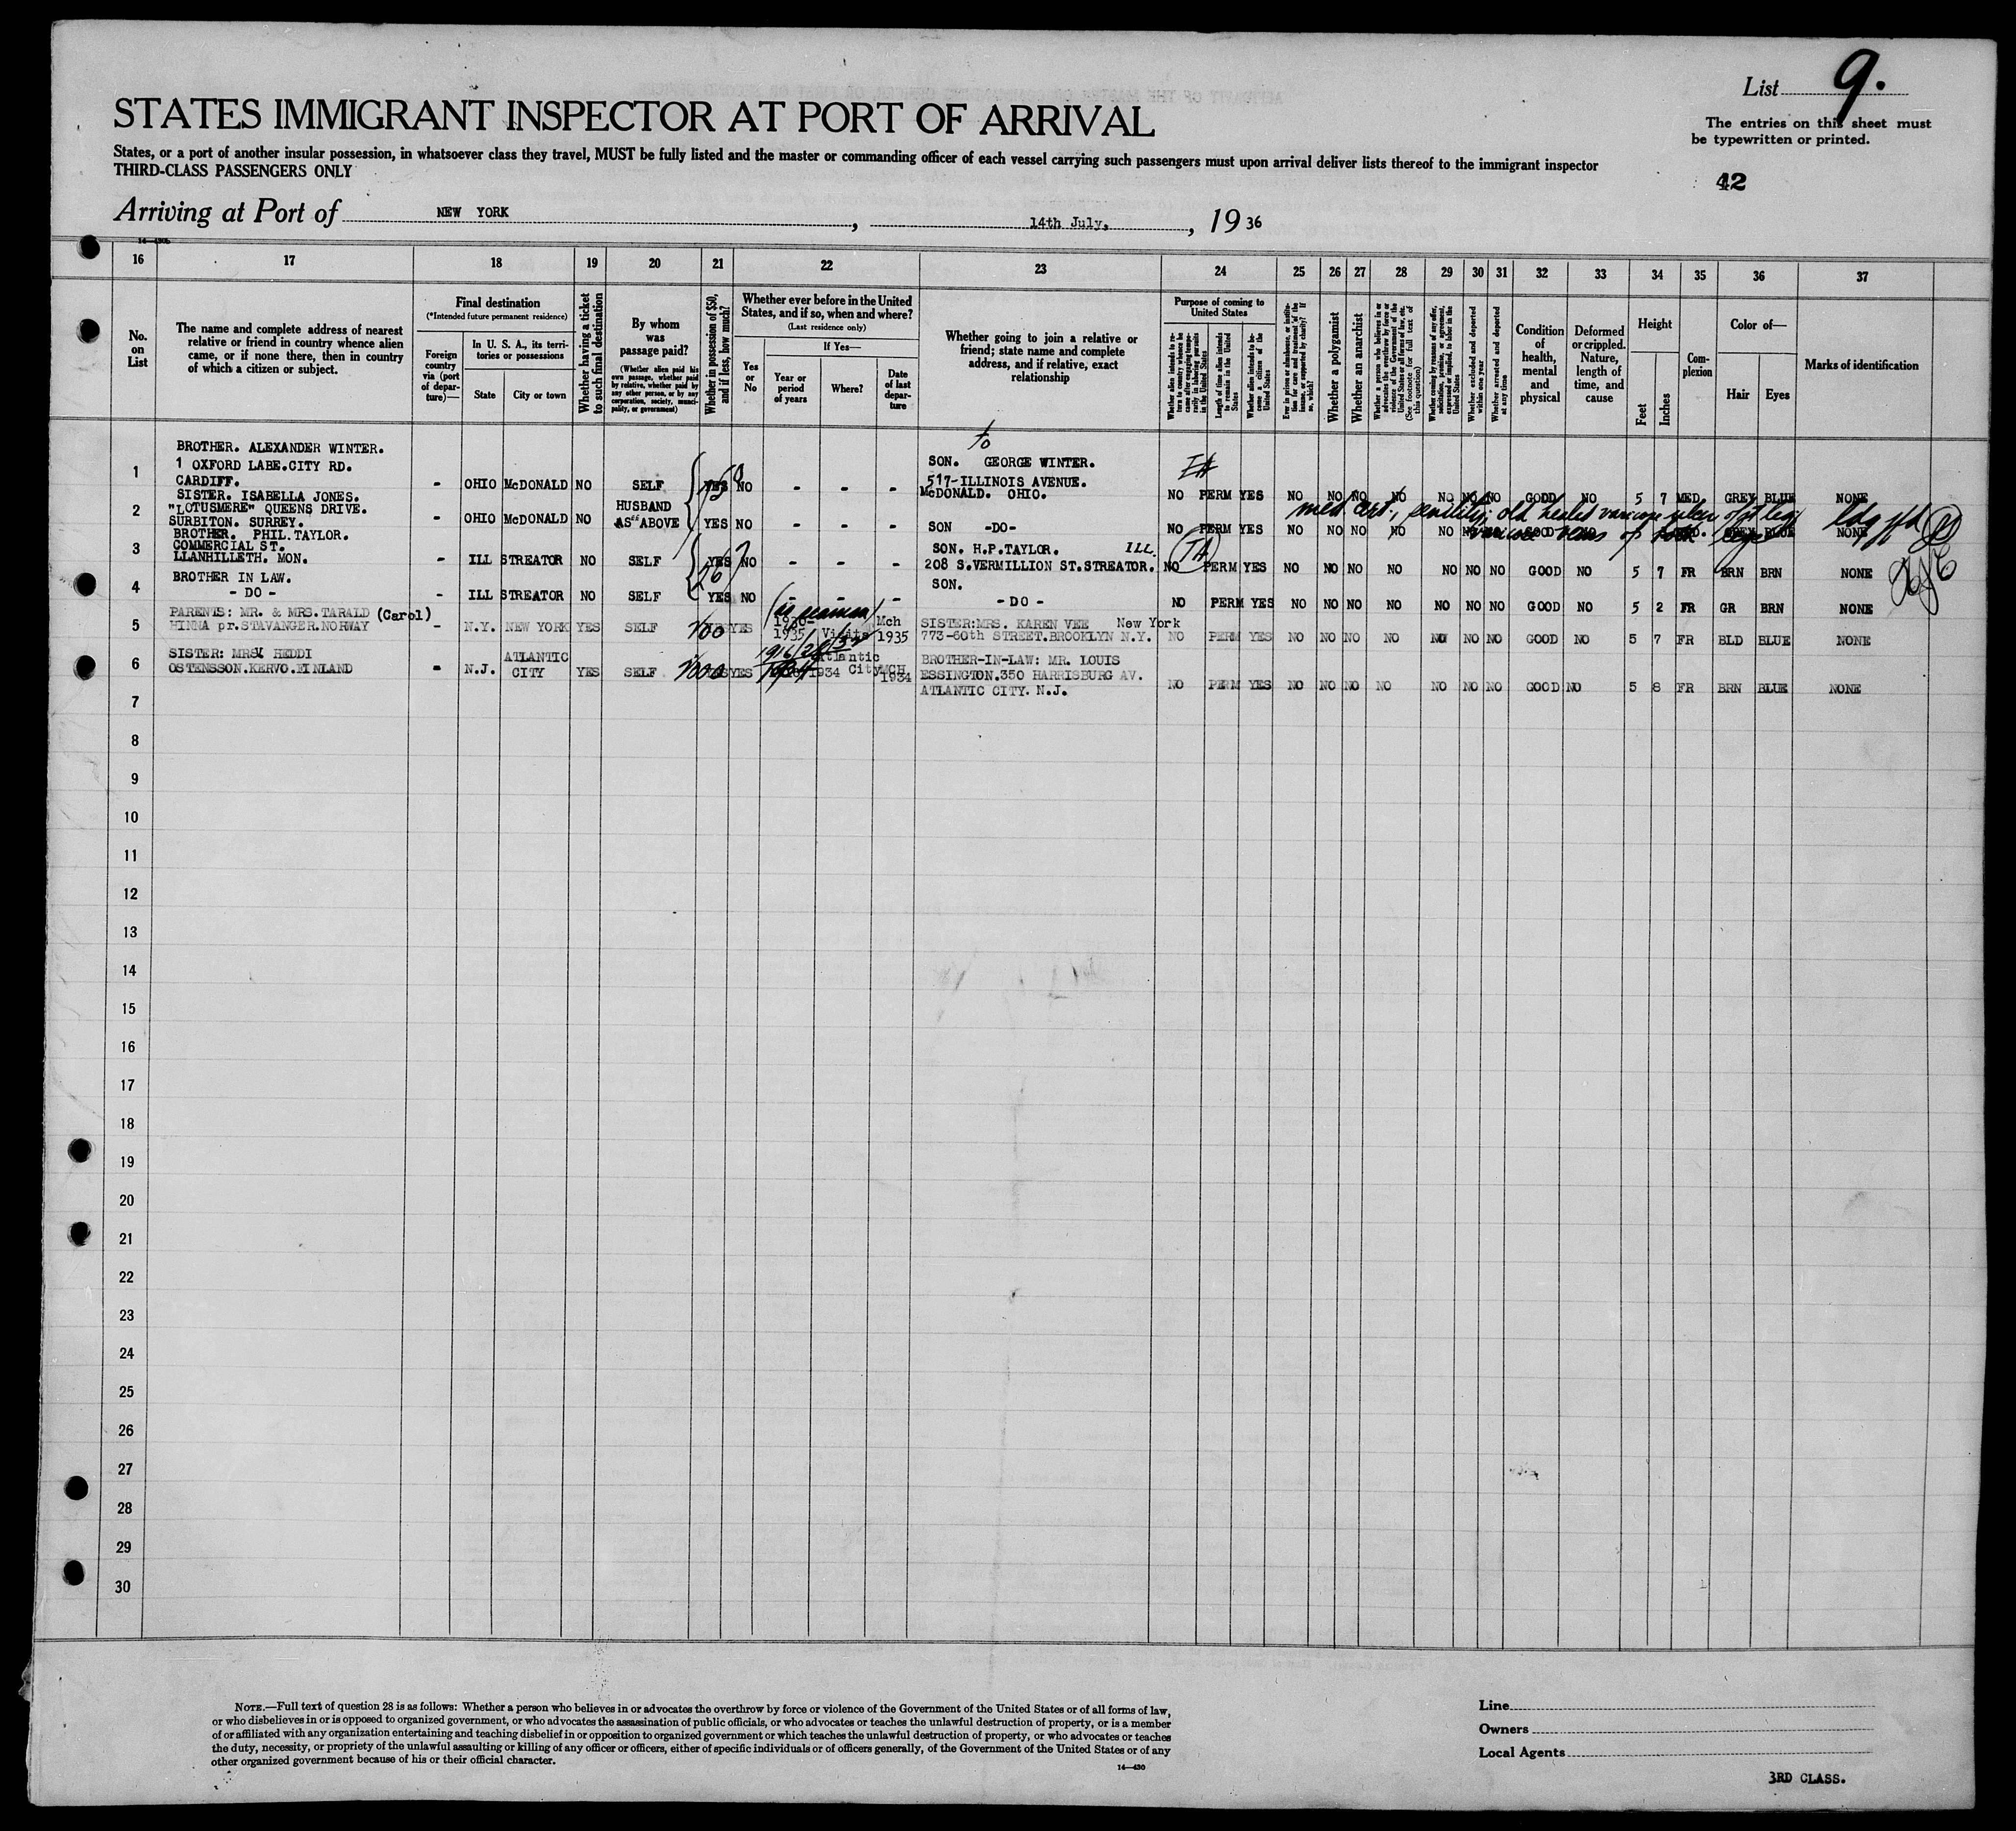 List 9.
The entries on this sheet must
be typewritten or printed.
42
STATES IMMIGRANT INSPECTOR AT PORT OF ARRIVAL
States, or a port of another insular possession, in whatsoever class they travel, MUST be fully listed and the master or commanding officer of each vessel carrying such passengers must upon arrival deliver lists thereof to the immigrant inspector
THIRD-CLASS PASSENGERS ONLY
Arriving at Port of NEW YORK, 14th July, 1936
16 17 18 19 20 21 22 23 24 25 26 27 28 29 30 31 32 33 34 35 36 37
No. on List
The name and complete address of nearest
relative or friend in country whence alien
came, or if none there, then in country
of which a citizen or subject.
Final destination
(*Intended future permanent residence)
Foreign country via (port of departure)—
In U. S. A., its territories or possessions
State
City or town
Whether having a ticket to such final destination
By whom was passage paid?
(Whether alien paid his own passage, whether paid by relative, whether paid by any other person, or by any corporation, society, municipality, or government)
Whether in possession of $50, and if less, how much?
Whether ever before in the United
States, and if so, when and where?
(Last residence only)
Yes or No
If Yes—
Year or period of years
Where?
Date of last departure
Whether going to join a relative or
friend; state name and complete
address, and if relative, exact
relationship
Purpose of coming to United States
Whether alien intends to return to country whence he came after engaging temporarily in laboring pursuits in the United States
Length of time alien intends to remain in the United States
Whether alien intends to become a citizen of the United States
Ever in prison or almshouse, or institution for care and treatment of the insane, or supported by charity? If so, which?
Whether a polygamist
Whether an anarchist
Whether excluded and deported within one year
Whether arrested and deported at any time
Condition of health, mental and physical
Deformed or crippled. Nature, length of time, and cause
Height
Feet
Inches
Complexion
Color of—
Hair
Eyes
Marks of identification
BROTHER. ALEXANDER WINTER.
1 OXFORD LABE.CITY RD.
CARDIFF.
1 - OHIO McDONALD NO SELF YES NO - - - SON. GEORGE WINTER.
517-ILLINOIS AVENUE.
McDONALD. OHIO. NO PERM YES NO NO NO NO NO NO NO GOOD NO 5 7 MED GREY BLUE NONE
SISTER. ISABELLA JONES.
"LOTUSMERE" QUEENS DRIVE.
SURBITON. SURREY.
2 - OHIO McDONALD NO HUSBAND AS ABOVE YES NO - - - SON -DO- NO PERM YES NO NO NO NO NO GOOD NONE
BROTHER. PHIL.TAYLOR.
COMMERCIAL ST.
LLANHILLETH. MON.
3 - ILL STREATOR NO SELF YES NO - - - SON. H.P.TAYLOR. ILL.
208 S.VERMILLION ST.STREATOR. NO PERM YES NO NO NO NO NO NO NO GOOD NO 5 7 FR BRN BRN NONE
BROTHER IN LAW.
- DO -
4 - ILL STREATOR NO SELF YES NO - - - SON.
- DO - NO PERM YES NO NO NO NO NO NO NO GOOD NO 5 2 FR GR BRN NONE
PARENTS: MR. & MRS.TARALD (Carol)
HINNA pr.STAVANGER.NORWAY
5 - N.Y. NEW YORK YES SELF YES 1935 Visits Mch 1935 SISTER:MRS. KAREN VEE New York
773-60th STREET.BROOKLYN N.Y. NO PERM YES NO NO NO NO NO NO NO GOOD NO 5 7 FR BLD BLUE NONE
SISTER: MRS. HEDDI
OSTENSSON.KERVO.FINLAND
6 - N.J. ATLANTIC CITY YES SELF YES 1934 Atlantic City MCH 1934 BROTHER-IN-LAW: MR. LOUIS
ESSINGTON.350 HARRISBURG AV.
ATLANTIC CITY. N.J. NO PERM YES NO NO NO NO NO NO NO GOOD NO 5 8 FR BRN BLUE NONE
7
8
9
10
11
12
13
14
15
16
17
18
19
20
21
22
23
24
25
26
27
28
29
30
NOTE.—Full text of question 28 is as follows: Whether a person who believes in or advocates the overthrow by force or violence of the Government of the United States or of all forms of law,
or who disbelieves in or is opposed to organized government, or who advocates the assassination of public officials, or who advocates or teaches the unlawful destruction of property, or is a member
of or affiliated with any organization entertaining and teaching disbelief in or opposition to organized government or which teaches the unlawful destruction of property, or who advocates or teaches
the duty, necessity, or propriety of the unlawful assaulting or killing of any officer or officers, either of specific individuals or of officers generally, of the Government of the United States or of any
other organized government because of his or their official character.
14—430
Line
Owners
Local Agents
3RD CLASS.